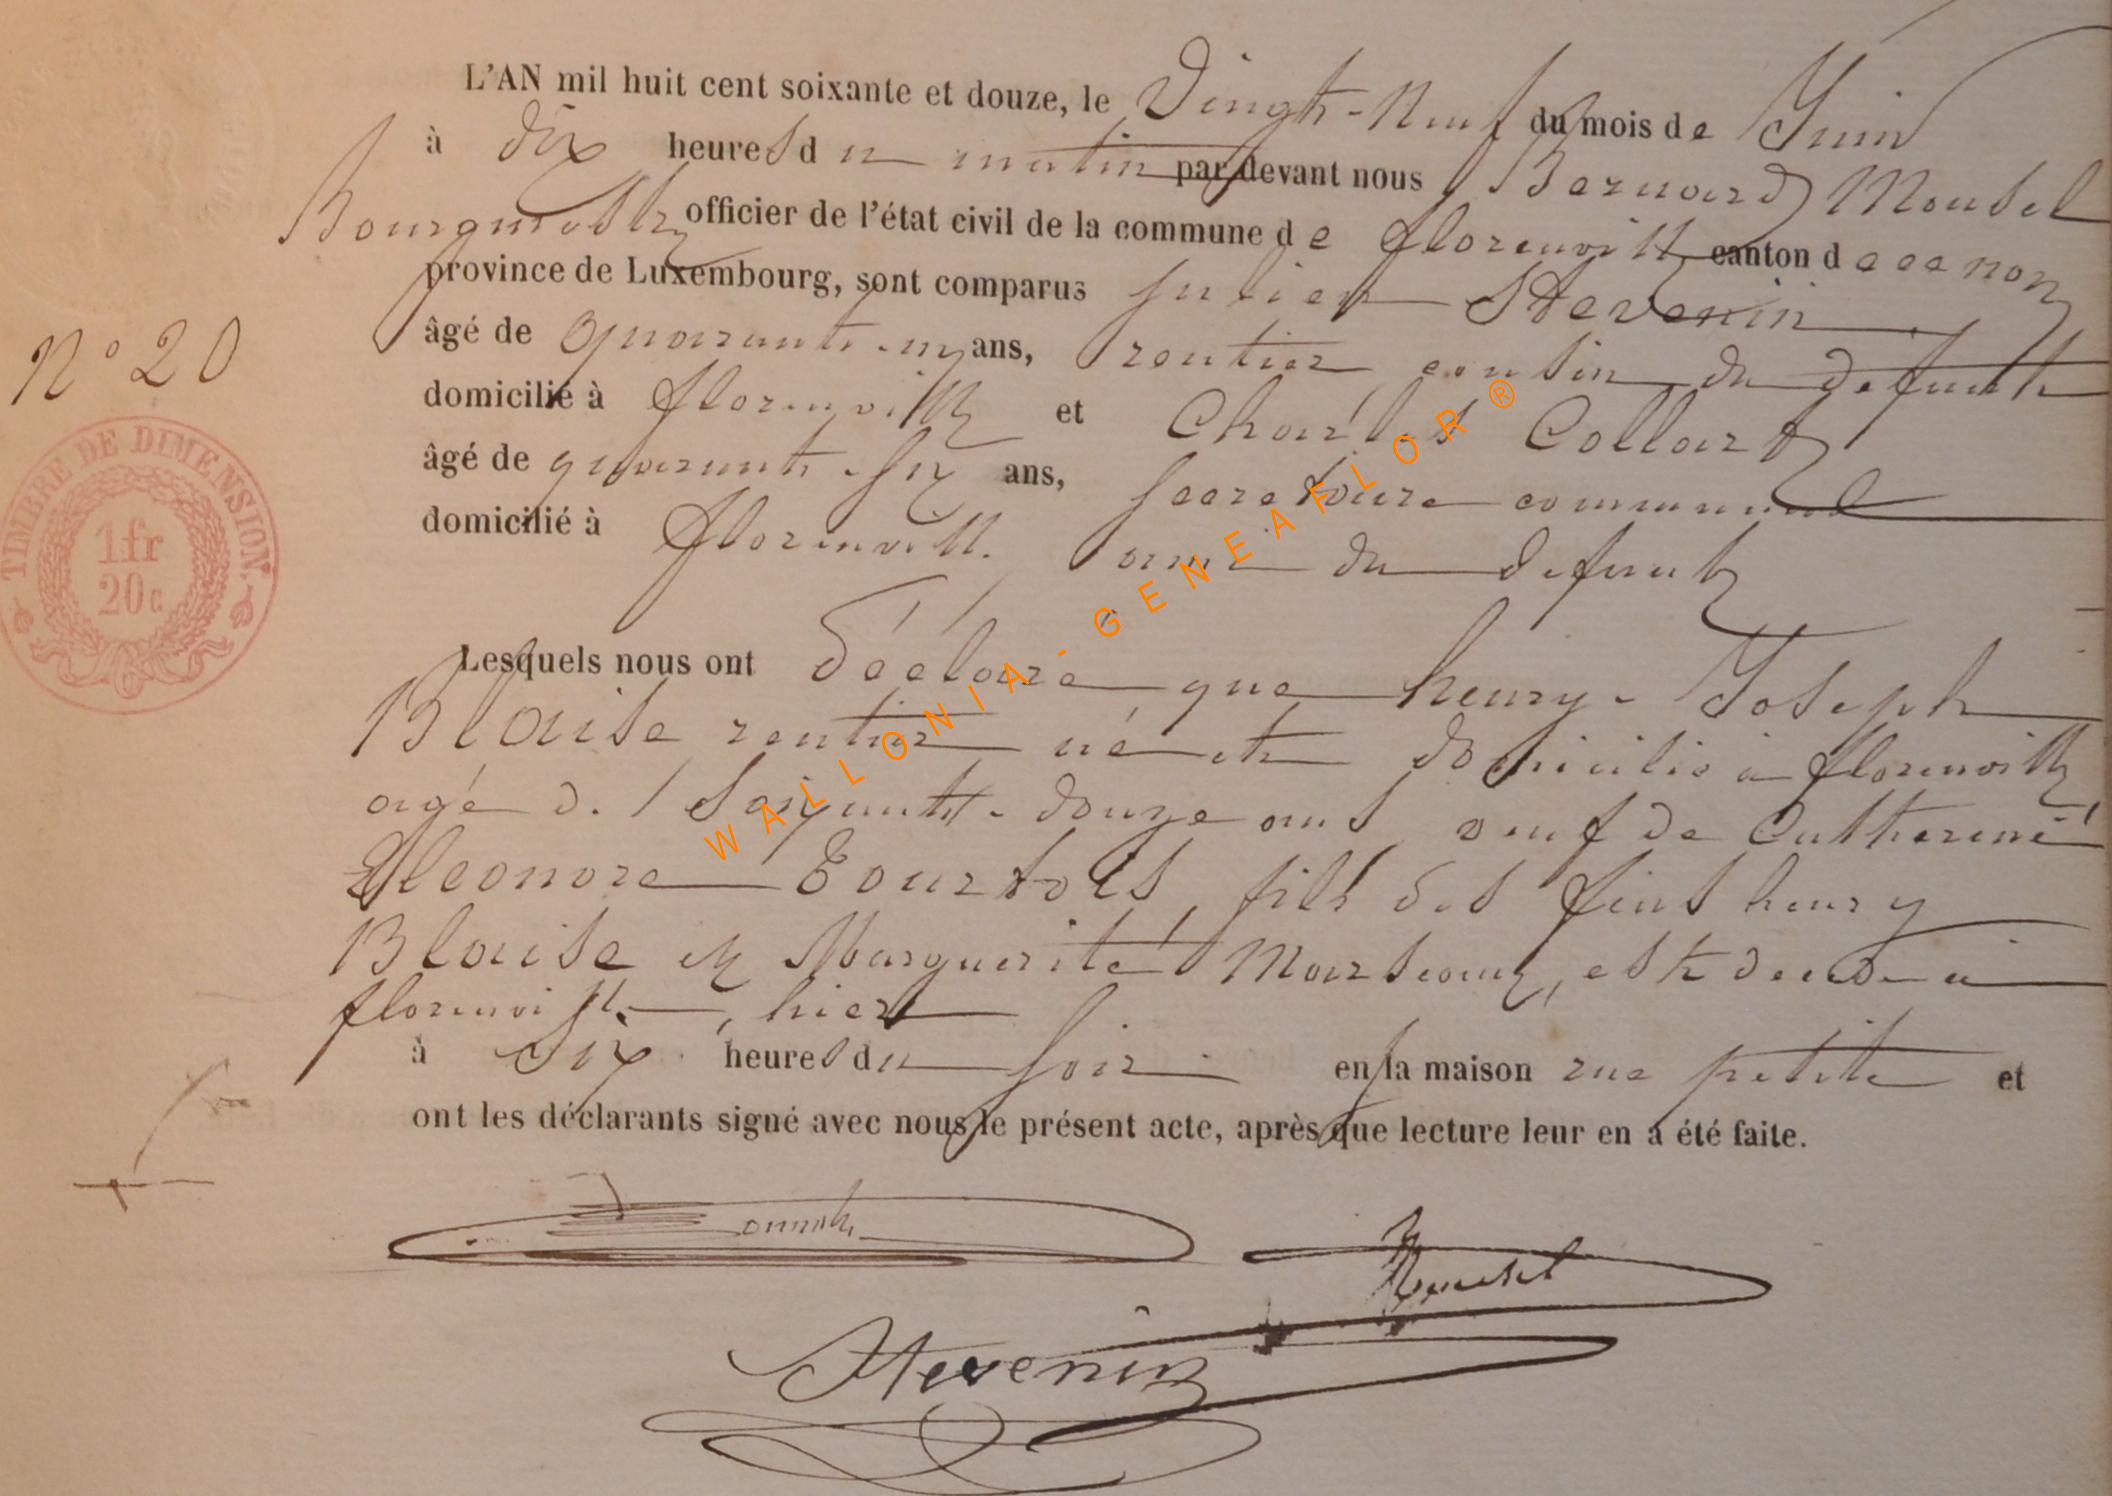 L'AN mil huit cent soixante et douze, le Vingt-Neuf du mois de Juin
à dix heures du matin par devant nous Bernard Mousel
Bourgmestre officier de l'état civil de la commune de florenville canton de
province de Luxembourg, sont comparus Julien Stevenin
N° 20
âgé de quarante-un ans, rentier cousin du defunt
domicilié à florenville et Charles Collart
âgé de quarante-six ans, secretaire communal
domicilié à florenville. ami du defunt
TIMBRE DE DIMENSION.
1fr
20c
Lesquels nous ont déclaré que henry-Joseph
Blaise rentier né et domicilié à florenville
agé de soixante-douze ans, veuf de Catherine
Eleonore Courtois, fils des feus henry
Blaise et Marguerite Marseaux, est decédé à
florenville, hier
à Six heures du soir en sa maison rue petite et
ont les déclarants signé avec nous le présent acte, après que lecture leur en a été faite.
Mousel
Stevenin
WALLONIA-GENEAFLOR®